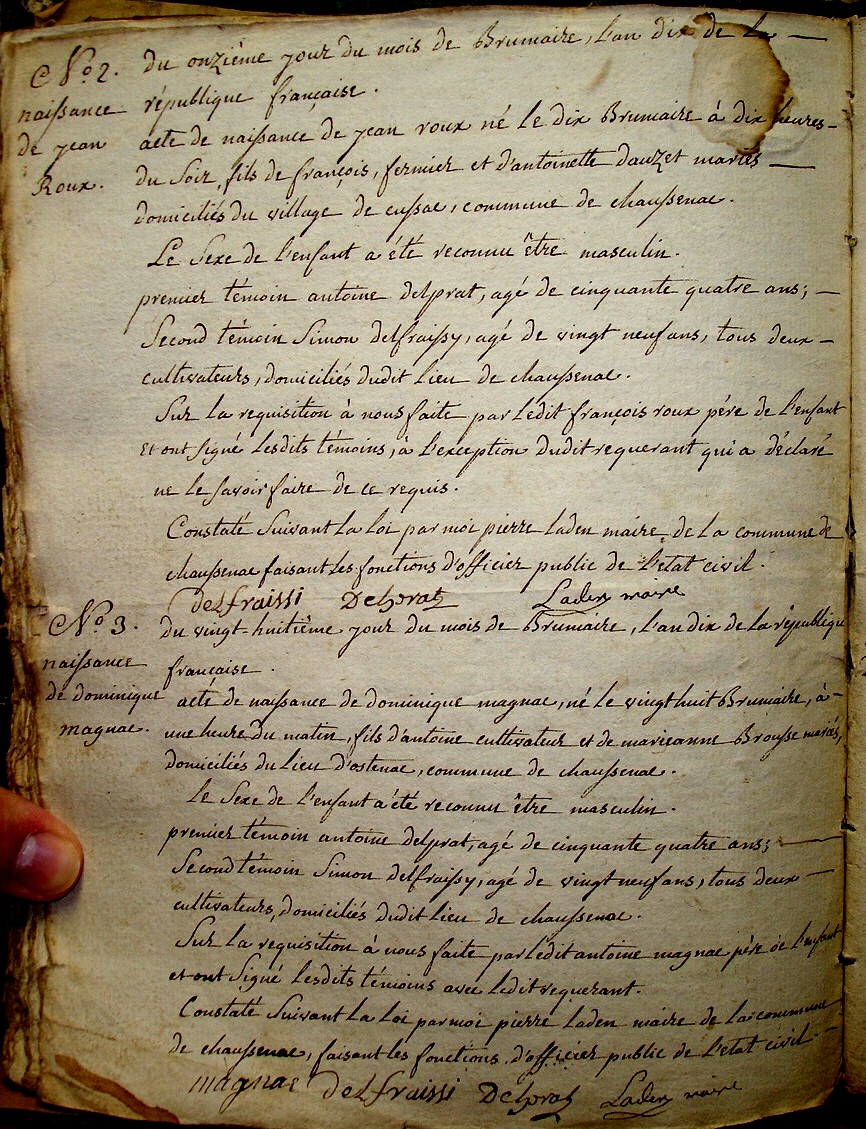 N.o 2. naissance de jean Roux.
du onzième jour du mois de Brumaire, l'an dix de la
république française.
acte de naissance de jean roux né le dix Brumaire à dix heures
du Soir, fils de françois, fermier et d'antoinette dauzet mariés
domiciliés du village de cussac, commune de chaussenac.
Le Sexe de l'enfant a été reconnu être masculin.
premier témoin antoine delprat, agé de cinquante quatre ans;
Second témoin Simon delfraissy, agé de vingt neuf ans, tous deux
cultivateurs, domiciliés dudit lieu de chaussenac.
Sur la requisition à nous faite par ledit françois roux père de l'enfant
Et ont signé lesdits témoins, à l'exception dudit requerant qui a déclaré
ne le savoir faire de ce requis.
Constaté Suivant la loi par moi pierre laden maire de la commune de
chaussenac faisant les fonctions d'officier public de l'état civil.
Delfraissi Delprat Laden maire
N.o 3. naissance de dominique magnac.
du vingt-huitième jour du mois de Brumaire, l'an dix de la république
française.
acte de naissance de dominique magnac, né le vingt huit Brumaire, à
une heure du matin, fils d'antoine cultivateur et de marieanne Brousse mariés,
domiciliés du lieu d'ostenac, commune de chaussenac.
le Sexe de l'enfant a été reconnu être masculin.
premier témoin antoine delprat, agé de cinquante quatre ans;
Second témoin Simon delfraissy, agé de vingt neuf ans, tous deux
cultivateurs, domiciliés dudit lieu de chaussenac.
Sur la requisition à nous faite par ledit antoine magnac père de l'enfant
et ont Signé lesdits témoins avec ledit requerant.
Constaté Suivant la loi par moi pierre laden maire de la commune
de chaussenac, faisant les fonctions d'officier public de l'état civil.
magnac Delfraissi Delprat Laden maire